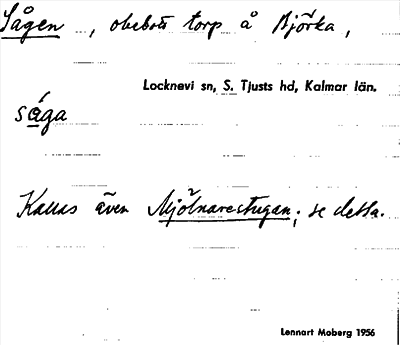 Sågen, obebott torp å Björka,
Locknevi sn, S. Tjusts hd, Kalmar län.
såga
Kallas även Mjölnarestugan; se detta.
Lennart Moberg 1956